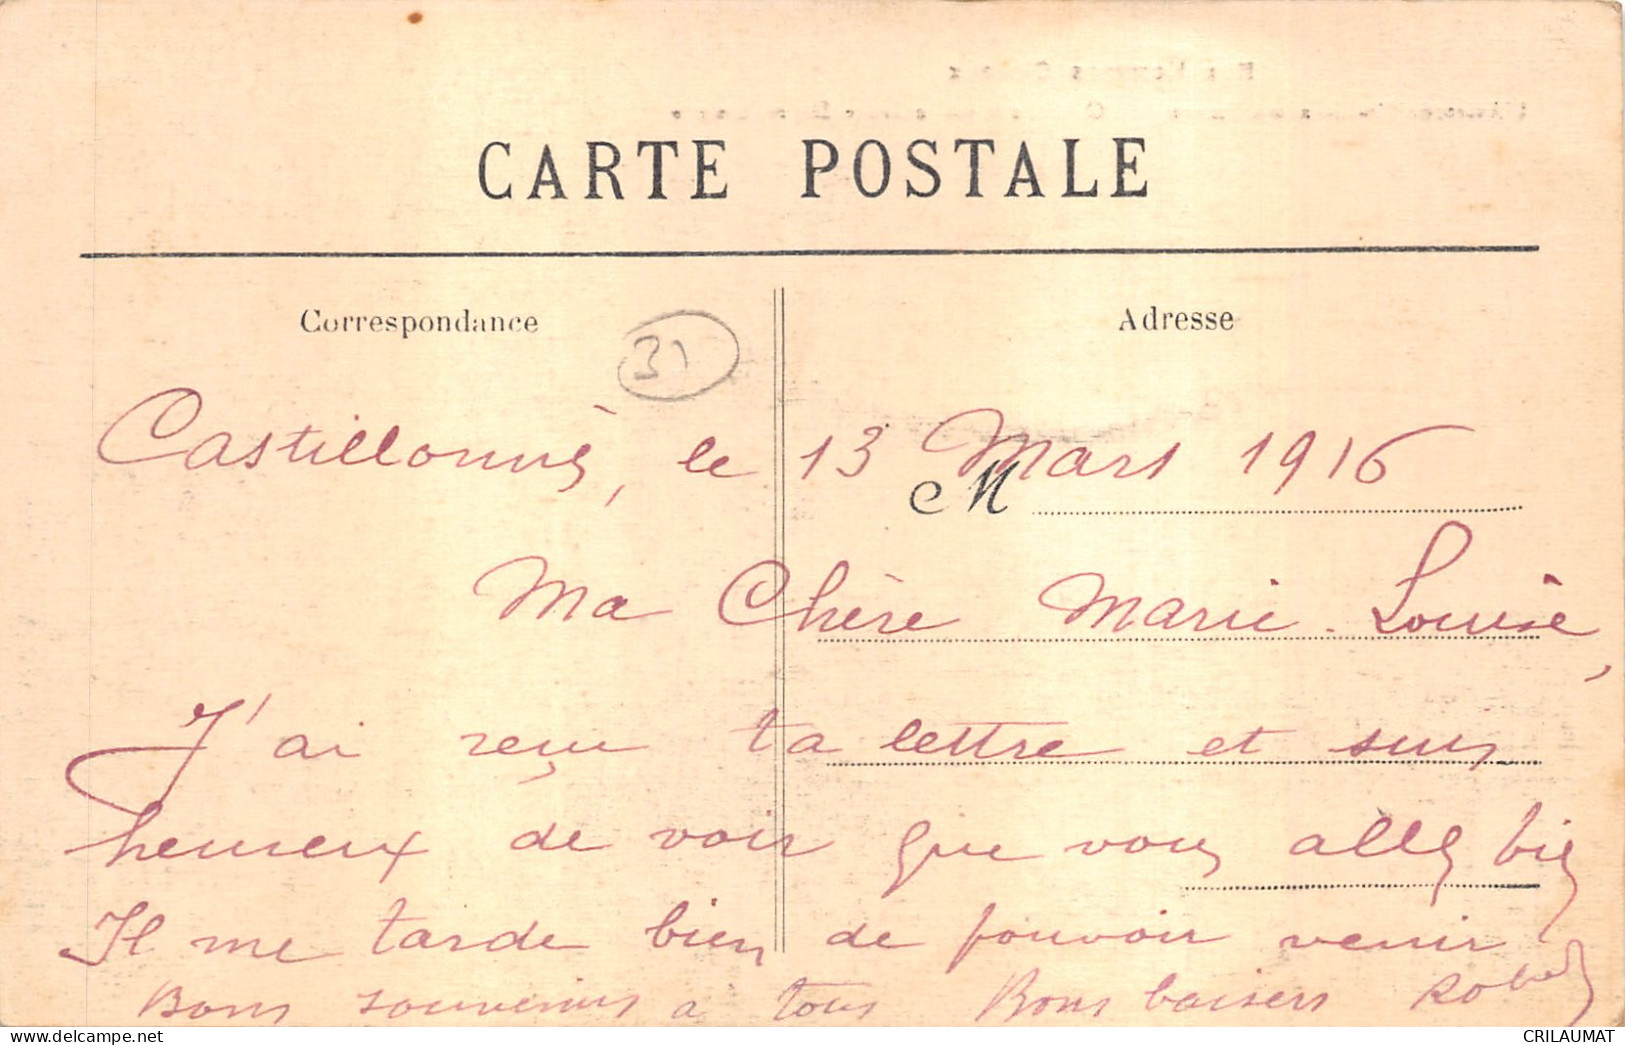 CARTE POSTALE
Correspondance
Adresse
31
Castillonnès, le 13 Mars 1916
M
Ma Chère Marie-Louise,
J'ai reçu ta lettre et suis
heureux de voir que vous allez bien
Il me tarde bien de pouvoir venir
Bons souvenirs à tous Bons baisers Robert
CRILAUMAT